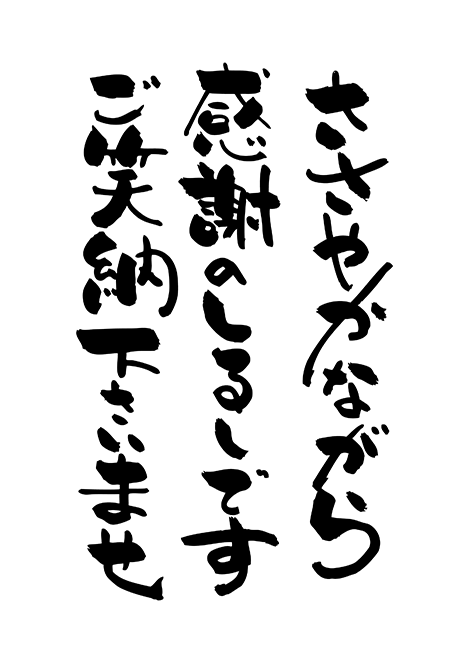 ささやかながら
感謝のしるしです
ご笑納下さいませ